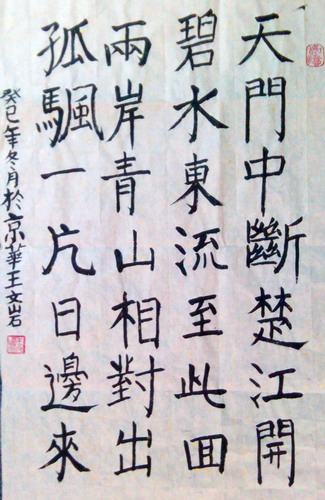 天門中斷楚江開
碧水東流至此回
兩岸青山相對出
孤颿一片日邊來
癸巳年冬月於京華王文岩